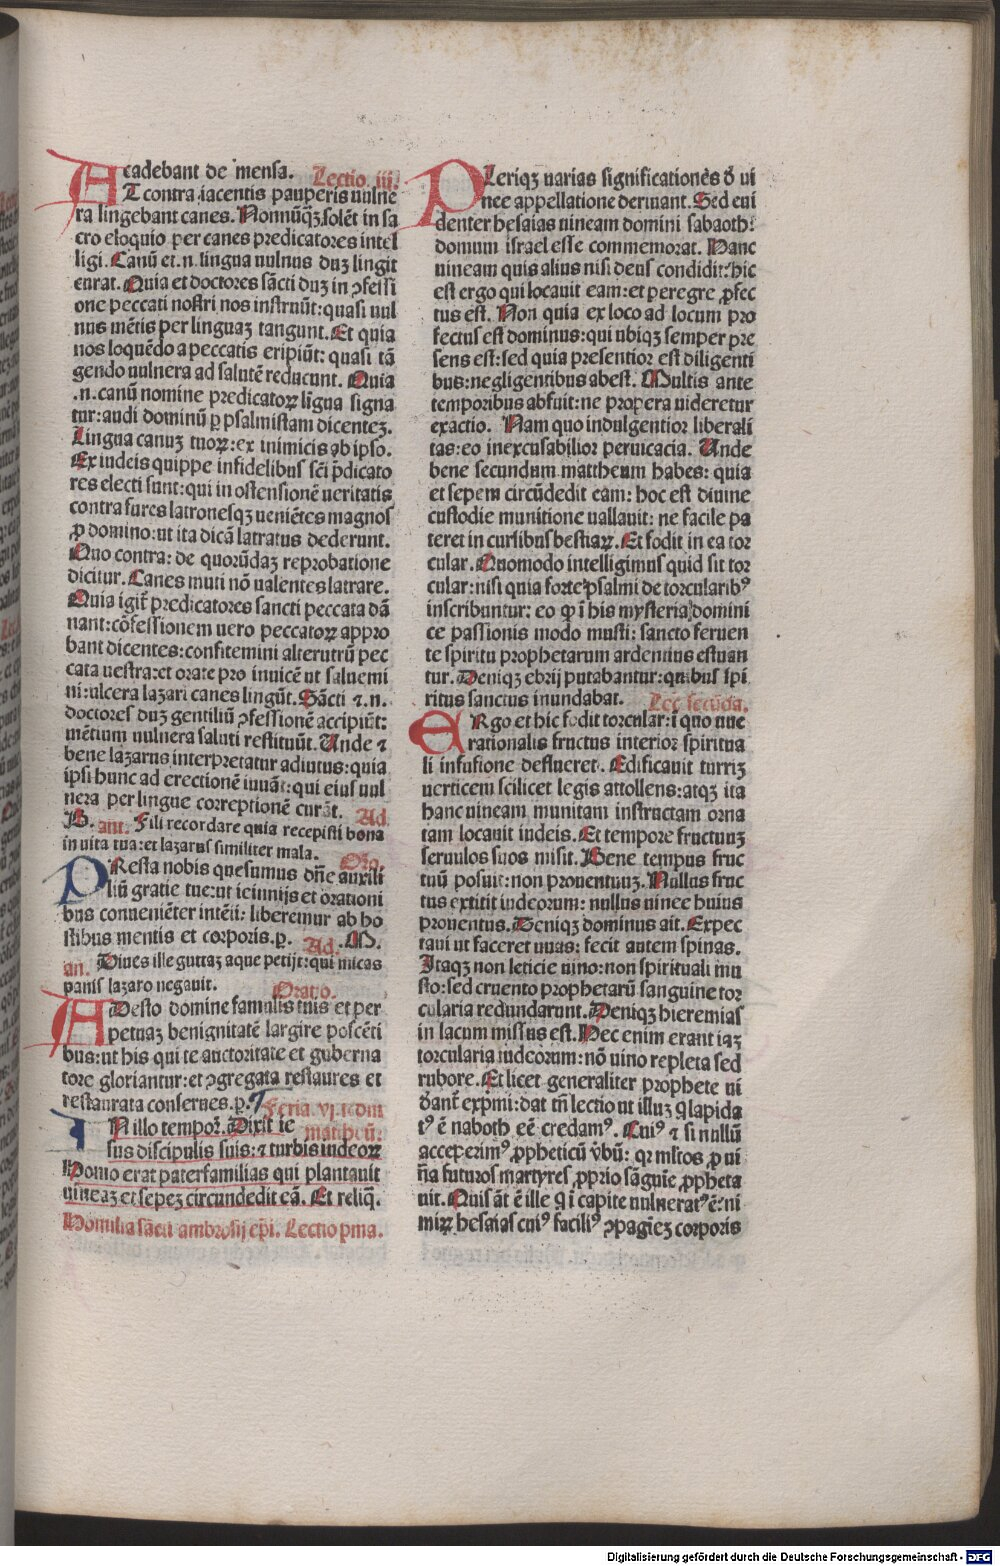 cadebant de mensa. Lectio. iii.
AT contra iacentis pauperis uulne
ra lingebant canes. Nonnūqʒ solēt in sa
cro eloquio per canes predicatores intel
ligi. Canū et .n. lingua uulnus duʒ lingit
curat. Quia et doctores sācti duʒ in ꝯfessi
one peccati nostri nos instruūt: quasi uul
nus mētis per linguaʒ tangunt. Et quia
nos loquēdo a peccatis eripiūt: quasi tā
gendo uulnera ad salutē reducunt. Quia
.n. canū nomine predicatoꝝ ligua signa
tur: audi dominū ꝑ psalmistam dicenteʒ.
Lingua canuʒ tuoꝝ: ex inimicis ab ipso.
Ex iudeis quippe infidelibus sēi p̄dicato
res electi sunt: qui in ostensionē ueritatis
contra fures latronesqʒ ueniētes magnos
ꝓ domino: ut ita dicā latratus dederunt.
Quo contra: de quorūdaʒ reprobatione
dicitur. Canes muti nō ualentes latrare.
Quia igit̄ predicatores sancti peccata dā
nant: cōfessionem uero peccatoꝝ appro
bant dicentes: confitemini alterutrū pec
cata uestra: et orate pro inuicē ut saluemi
ni: ulcera lazari canes lingūt. Sācti ⁊ .n.
doctores duʒ gentiliū ꝯfessionē accipiūt:
mētium uulnera saluti restituūt. Unde ⁊
bene lazarus interpretatur adiutus: quia
ipsi hunc ad erectionē iuuāt: qui eius uul
nera per lingue correptionē curāt. Ad
B. ant. Fili recordare quia recepisti bona
in uita tua: et lazarus similiter mala. Oro.
PResta nobis quesumus dn̄e auxili
liū gratie tue: ut ieiunijs et orationi
bus conueniēter intēti: liberemur ab ho
stibus mentis et corporis. p. Ad. M.
an. Diues ille guttaʒ aque petijt: qui micas
panis lazaro negauit. Oratio.
ADesto domine famulis tuis et per
petuaʒ benignitatē largire poscēti
bus: ut his qui te auctoritate et guberna
tore gloriantur: et ꝯgregata restaures et
restaurata conserues. p. Feria. vj. secun
IN illo tempor̄. Dixit ie matheū:
sus discipulis suis: ⁊ turbis iudeoꝝ
Homo erat paterfamilias qui plantauit
uineaʒ et sepeʒ circundedit eā. Et reliq̄.
Homilia sācti ambrosij ep̄i. Lectio p̄ma.
PLeriqʒ uarias significationes d̄ ui
nee appellatione deriuant. Sed eui
denter hesaias uineam domini sabaoth:
domum israel esse commemorat. Hanc
uineam quis alius nisi deus condidit: hic
est ergo qui locauit eam: et peregre ꝓfec
tus est. Non quia ex loco ad locum pro
fectus est dominus: qui ubiqʒ semper pre
sens est: sed quia presentior est diligenti
bus: negligentibus abest. Multis ante
temporibus abfuit: ne propera uideretur
exactio. Nam quo indulgentior liberali
tas: eo inexcusabilior peruicacia. Unde
bene secundum mattheum habes: quia
et sepem circūdedit eam: hoc est diuine
custodie munitione uallauit: ne facile pa
teret in cursibus bestiaꝝ. Et fodit in ea tor
cular. Quomodo intelligimus quid sit tor
cular: nisi quia forte psalmi de torcularibꝰ
inscribuntur: eo ꝙ ī his mysteria domini
ce passionis modo musti: sancto feruen
te spiritu prophetarum ardentius estuan
tur. Deniqʒ ebrij putabantur: quibus spi
ritus sanctus inundabat. Lec̄. secūda.
ERgo et hic fodit torcular: ī quo uue
rationalis fructus interior spiritua
li infusione deflueret. Edificauit turriʒ
uerticem scilicet legis attollens: atqʒ ita
hanc uineam munitam instructam orna
tam locauit iudeis. Et tempore fructuuʒ
seruulos suos misit. Bene tempus fruc
tuū posuit: non prouentuuʒ. Nullus fruc
tus extitit iudeorum: nullus uinee huius
prouentus. Deniqʒ dominus ait. Expec
taui ut faceret uuas: fecit autem spinas.
Itaqʒ non leticie uino: non spirituali mu
sto: sed cruento prophetarū sanguine tor
cularia redundarunt. Deniqʒ hieremias
in lacum missus est. Hec enim erant iaʒ
torcularia iudeorum: nō uino repleta sed
rubore. Et licet generaliter prophete ui
d̄ant̄ exp̄mi: dat tn̄ lectio ut illuʒ q̄ lapida
tꝰ ē naboth eē credamꝰ. Cuiꝰ ⁊ si nullū
acceperimꝰ ꝓpheticū v̄bū: qr mltos ꝓ ui
n̄a futuros martyres ꝓprio sāguīe ꝓpheta
uit. Quis āt ē ille q̄ ī capite uulneratꝰ ē: ni
miꝝ hesaias cuiꝰ faciliꝰ ꝯpagieʒ corporis
Digitalisierung gefördert durch die Deutsche Forschungsgemeinschaft - DFG